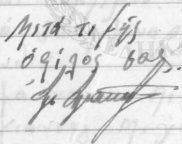 μετά τιμής
ὁ φίλος σας.